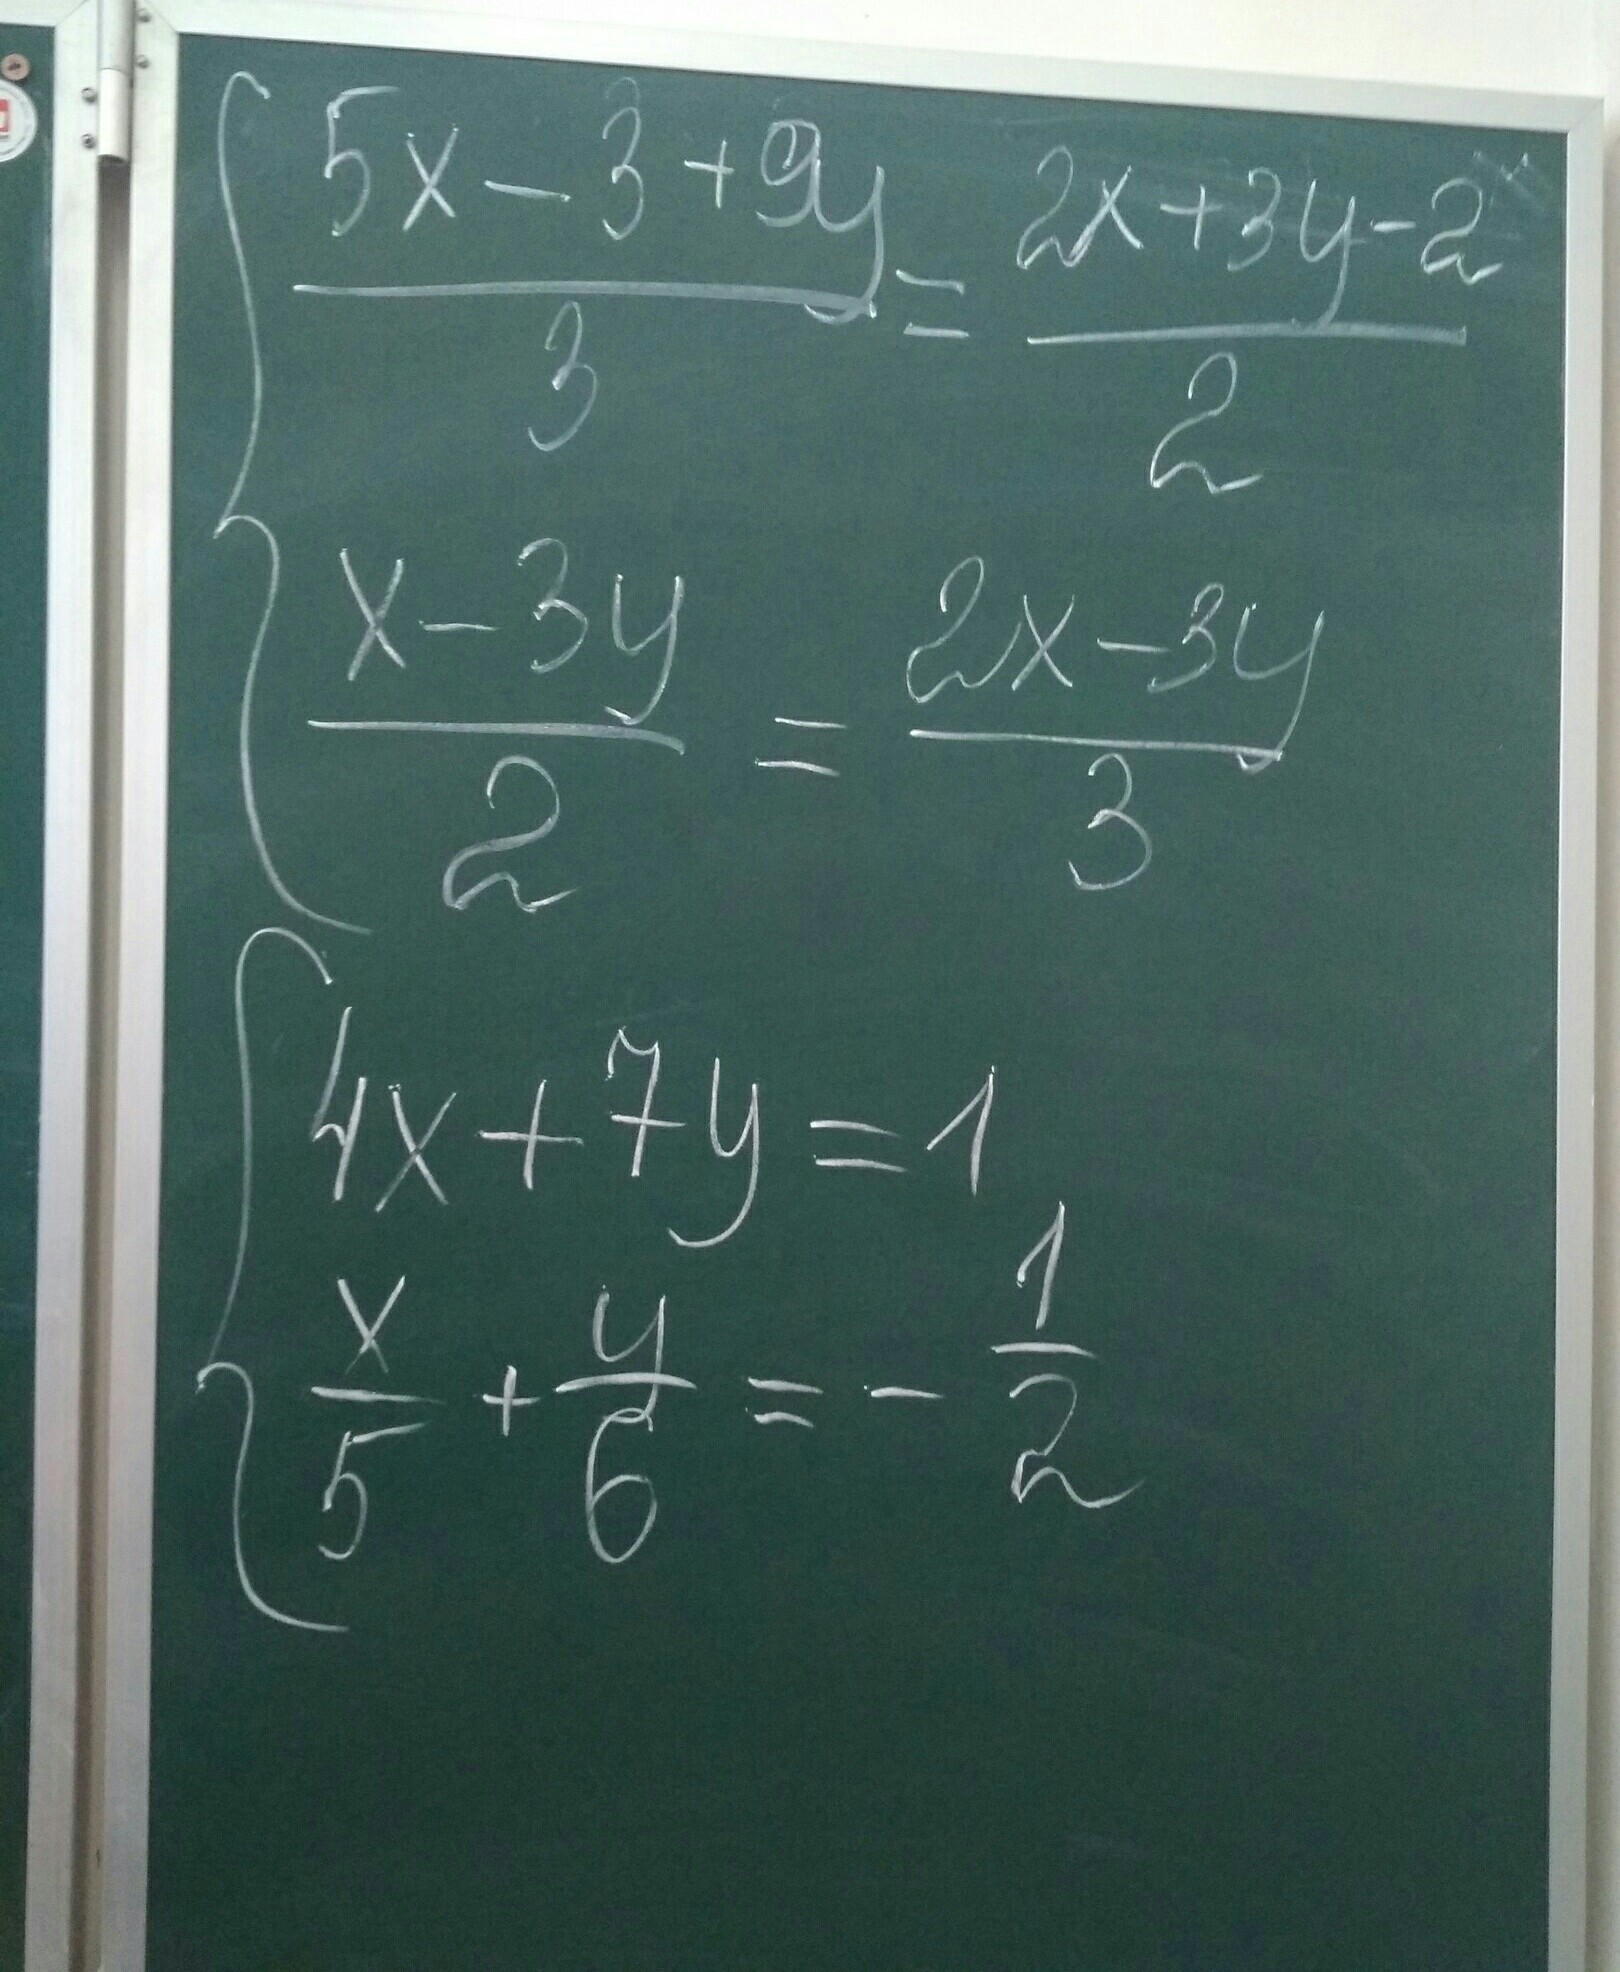 { (5x - 3 + 9y)/3 = (2x + 3y - 2)/2
(x - 3y)/2 = (2x - 3y)/3
{ 4x + 7y = 1
x/5 + y/6 = - 1/2